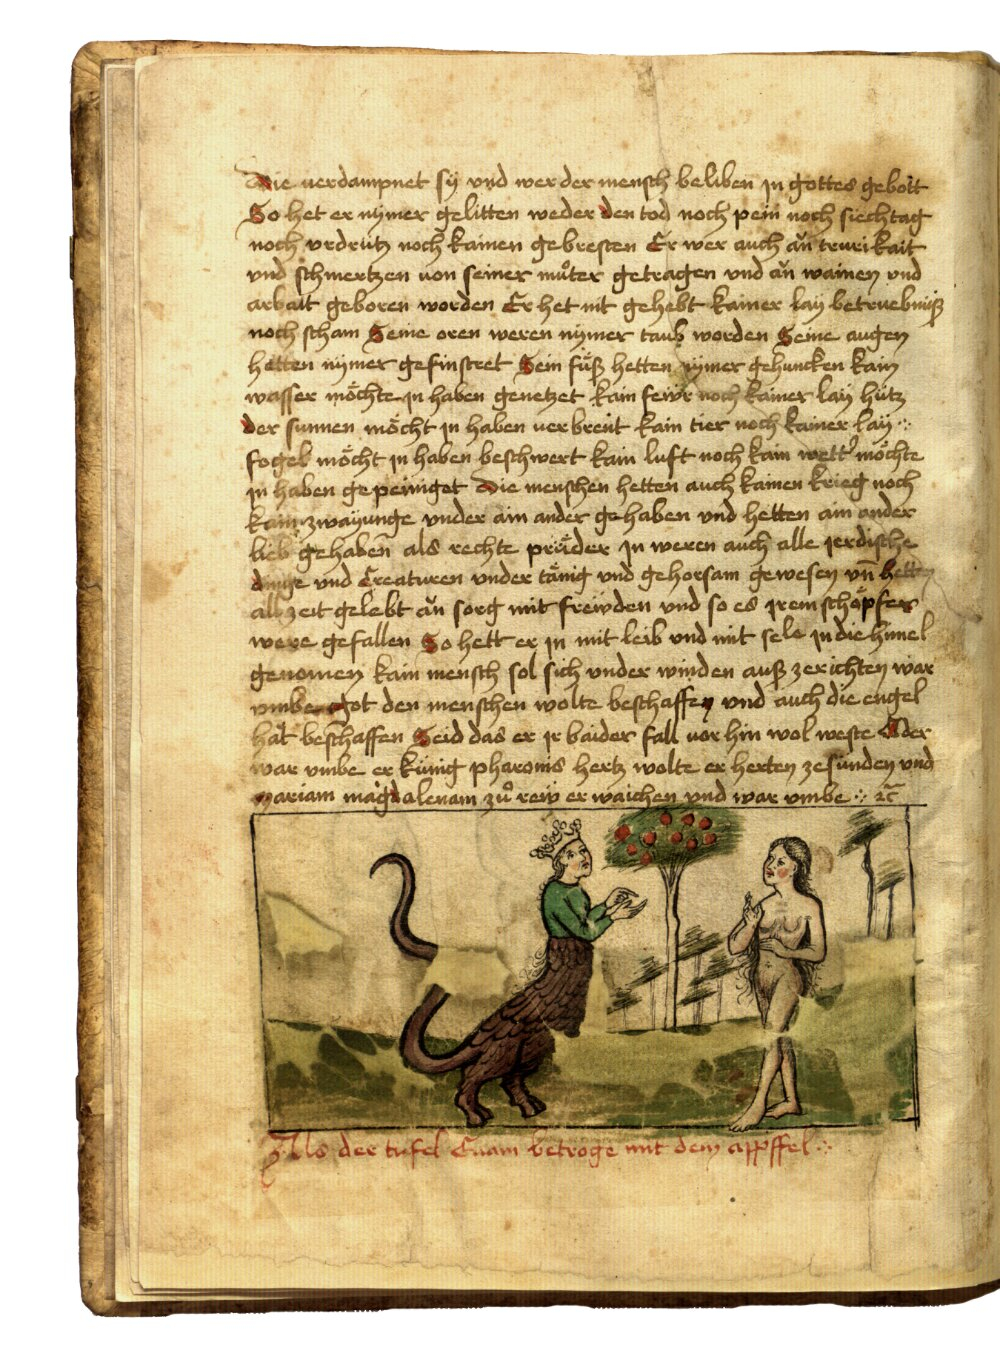 Die verdampnet sÿ vnd wer der mensch beliben jn gottes gebott
So het er nÿmer gelitten weder den tod noch pein noch siechtag
noch vrdrütz noch kainen gebresten Er wer auch an̄ trurikait
vnd schmertzen von seiner muͦter getragen vnd an̄ wainen vnd
arbait geboren worden Er het nit gehebt kainer laÿ betruebnuß
noch scham Seine oren weren nÿmer taub worden Seine augen
hetten nÿmer gefinstret Sein füß hetten nÿmer gehuncken kain
wasser möchte jn haben genetzet kain fewr noch kainer laÿ hütz
der sunnen möcht jn haben verbrent kain tier noch kainer laÿ
fogel möcht jn haben beschwert kain luft noch kain wetter möchte
jn haben gepeiniget Die menschen hetten auch kainen krieg noch
kain zwaÿunge vnder ain ander gehaben vnd hetten ain ander
lieb gehaben̄ als rechte prüder jn weren auch alle jerdische
dinge vnd Creaturen vnder tänig vnd gehorsam gewesen vn̄ hetten
all zeit gelebt an̄ sorg mit frewden vnd so es jrem schöpfer
were gefallen So hett er jn mit leib vnd mit sele jn die himel
genomen kain mensch sol sich vnder winden auß ze richten war
vmbe got den menschen wolte beschaffen vnd auch die engel
hat beschaffen Seid das er jr baider fall vor hin wol weste Oder
war vmbe er künig pharonis hertz wolte er herten ze sünden vnd
mariam magdalenam zuͦ rew er waichen vnd war vmbe ⁘ ꝛc̄
Als der tufel Euam betroge mit dem appffel ⁘